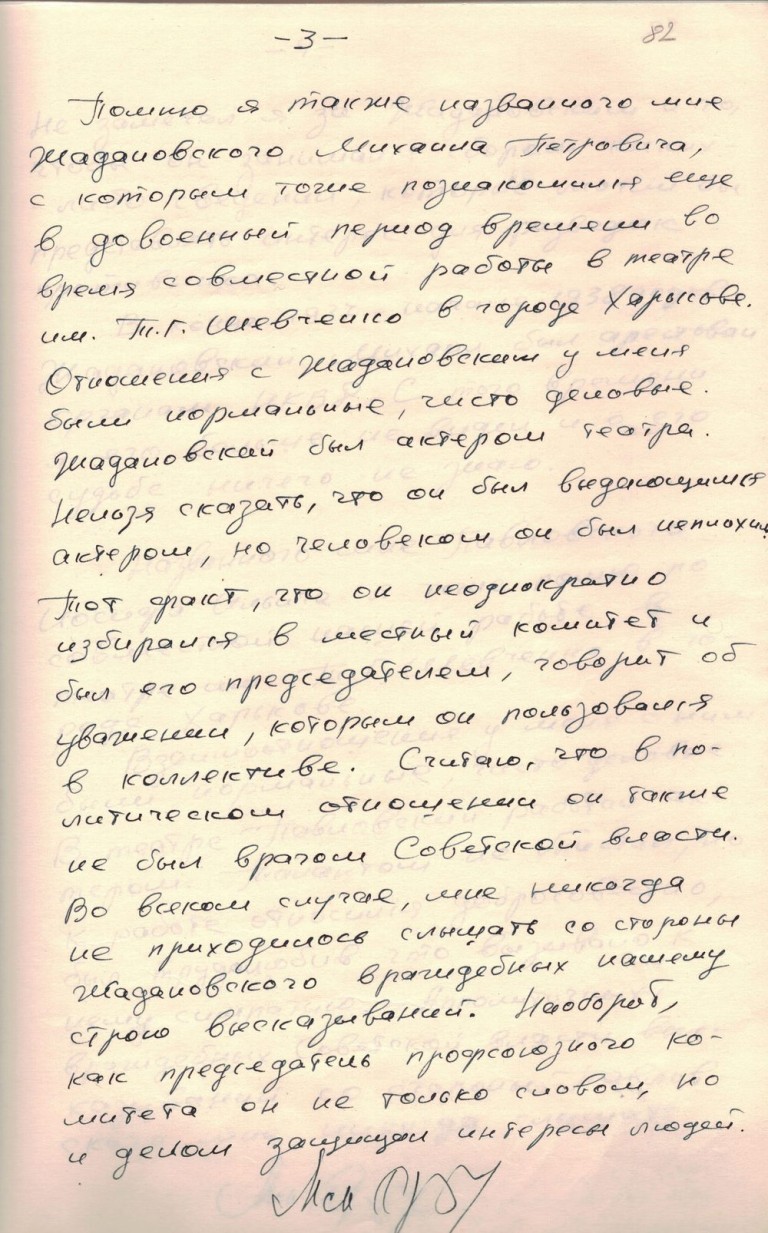 -3-
82
Помню я также названного мне
Жадановского Михаила Петровича,
с которым тоже познакомился еще
в довоенный период времени во
время совместной работы в театре
им. Т.Г. Шевченко в городе Харькове.
Отношения с Жадановским у меня
были нормальные, чисто деловые.
Жадановский был актером театра.
Нельзя сказать, что он был выдающимся
актером, но человеком он был неплохим.
Тот факт, что он неоднократно
избирался в местный комитет и
был его председателем, говорит об
уважении, которым он пользовался
в коллективе. Считаю, что в по-
литическом отношении он также
не был врагом Советской власти.
Во всяком случае, мне никогда
не приходилось слышать со стороны
Жадановского враждебных нашему
строю высказываний. Наоборот,
как председатель профсоюзного ко-
митета он не только словом, но
и делом защищал интересы людей.